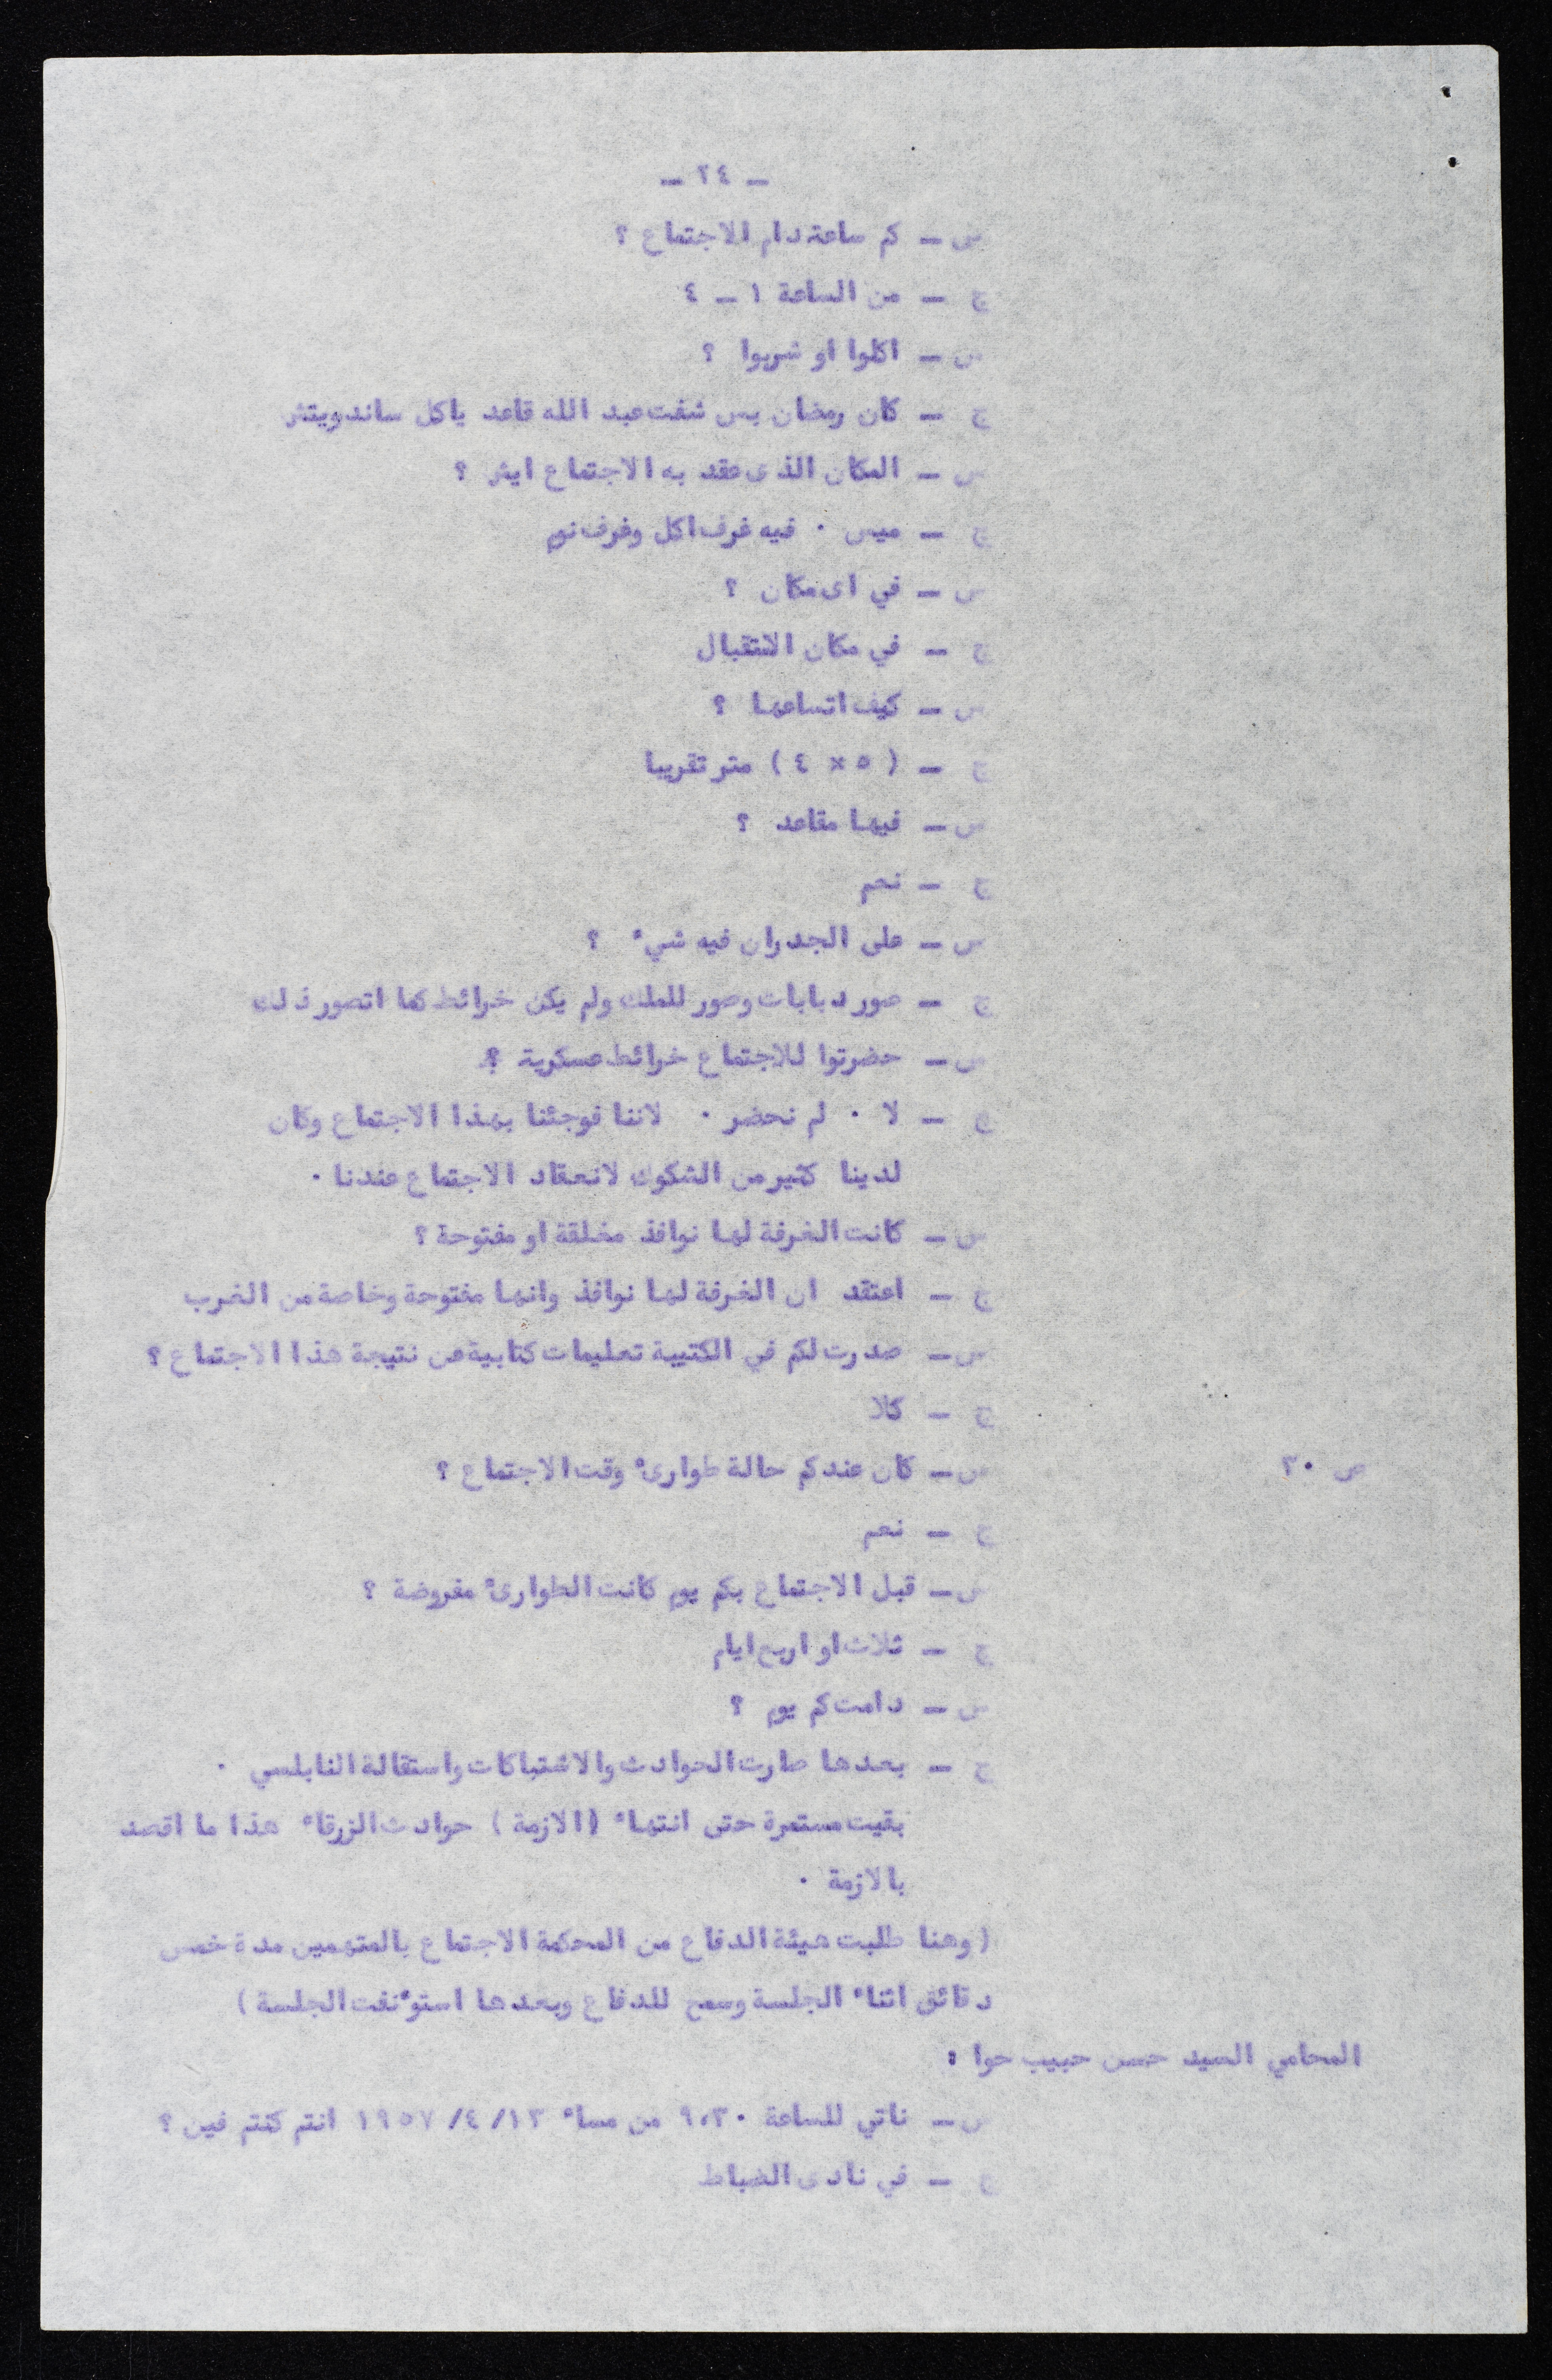 - ٢٤ -
س - كم ساعة دام الاجتماع ؟
ج - من الساعة ١ - ٤
س - اكلوا او شربوا ؟
ج - كان رمضان بس شفت عبد الله قاعد ياكل ساندويتش
س - المكان الذى عقد به الاجتماع ايش ؟
ج - ميس ٠ فيه غرف اكل وغرف نوم
س - في اى مكان ؟
ج - في مكان الاستقبال
س - كيف اتساعها ؟
ج - ( ٥ × ٤ ) متر تقريبا
س - فيها مقاعد ؟
ج - نعم
س - على الجدران فيه شيء ؟
ج - صور دبابات وصور للملك ولم يكن خرائط كما اتصور ذلك
س - حضرتوا للاجتماع خرائط عسكرية ؟
ج - لا ٠ لم نحضر ٠ لاننا فوجئنا بهذا الاجتماع وكان
لدينا كثير من الشكوك لانعقاد الاجتماع عندنا ٠
س - كانت الغرفة لها نوافذ مغلقة او مفتوحة ؟
ج - اعتقد ان الغرفة لها نوافذ وانها مفتوحة وخاصة من الغرب
س - صدرت لكم في الكتيبة تعليمات كتابية عن نتيجة هذا الاجتماع ؟
ج - كلا
ص ٢٠ س - كان عندكم حالة طوارىء وقت الاجتماع ؟
ج - نعم
س - قبل الاجتماع بكم يوم كانت الطوارىء مفروضة ؟
ج - ثلاث او اربع ايام
س - دامت كم يوم ؟
ج - بعدها صارت الحوادث والاشتباكات واستقالة النابلسي ٠
بقيت مستمرة حتى انتهاء (الازمة ) حوادث الزرقاء هذا ما اقصد
بالازمة ٠
( وهنا طلبت هيئة الدفاع من المحكمة الاجتماع بالمتهمين مدة خمس
دقائق اثناء الجلسة وسمح للدفاع وبعدها استؤنفت الجلسة )
المحامي السيد حسن حبيب حوا :
س - ناتي للساعة ٩،٣٠ من مساء ١٣/ ٤/ ١٩٥٧ انتم كنتم فين ؟
ج - في نادى الضباط